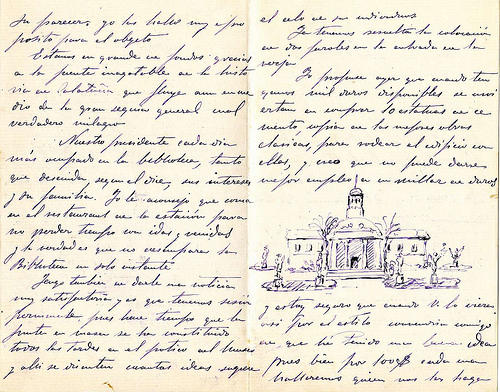 Su parecer, yo los hallo muy a pro
posito para el objeto
Estamos en grande de fondos gracias
a la fuente inagotable de la histo
ria de que fluye aun en me
dio de la gran sequia general cual
verdadero milagro
Nuestro presidente cada dia
más ocupado en la biblioteca, tanto
que descuida, segun el dice, sus intereses
y su familia. Yo le aconsejo que coma
en el restaurant de la estación para
no perder tiempo con idas y venidas
y la verdad es que no desampara la
Biblioteca un solo instante
Tengo tambien que darle una noticia
muy satisfactoria y es que tenemos sesion
permanente pues hace tiempo que la
junta en masa se ha constituido
todas las tardes en el portico del Museo
y alli se discuten cuantas ideas sugiere
el celo de sus individuos
Ya tenemos resuelta la colocación
de dos faroles en la entrada de la
verja
Yo propuse ayer que cuando ten
gamos mil duros disponibles se invi
ertan en comprar 10 estatuas de ce
mento, copia de las mejores obras
clasicas, para rodear el edificio con
ellas, y creo que no puede darse
mejor empleo a un millar de duros
y estoy seguro que cuando V. la viera
asi por el estilo convendria conmigo
en que he tenido una buena idea
pues bien por 100 cada una
hallaremos quien nos las haga